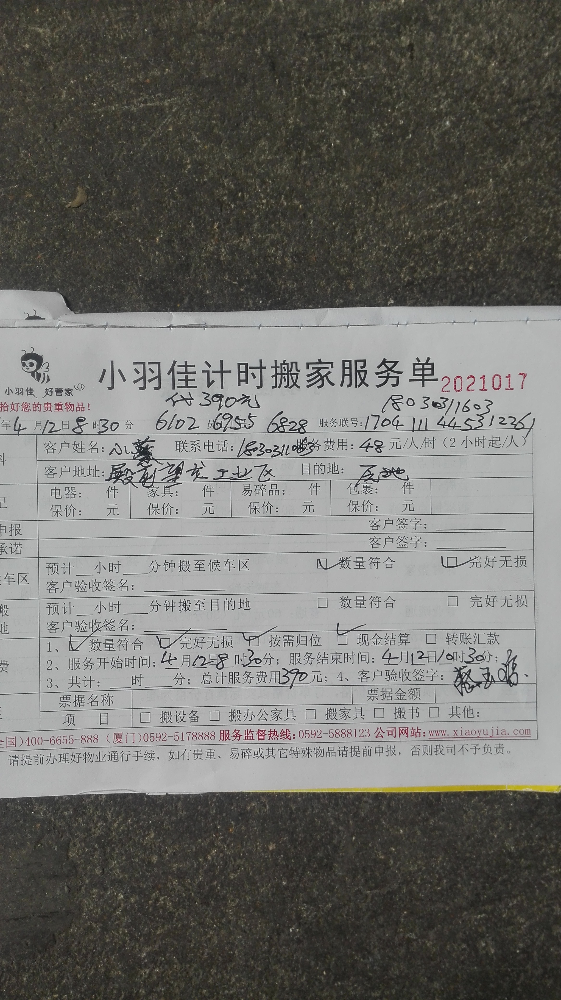 小羽佳 好管家
小羽佳计时搬家服务单 2021017
拾好您的贵重物品!
代390元 18030311603
年4月12日8时30分 6102 6955 6828 服务联号:1704111445312261
客户姓名: 联系电话: 费用:48元/人/时(2小时起/人)
客户地址: 工业区 目的地:
电器: 件 家具: 件 易碎品: 件 包裹: 件
保价: 元 保价: 元 保价: 元 保价: 元
申报 客户签字:
承诺 客户签字:
预计 小时 分钟搬至候车区 数量符合 完好无损
车区 客户验收签名:
预计 小时 分钟搬至目的地 数量符合 完好无损
地 客户验收签名:
1、数量符合 完好无损 按需归位 现金结算 转账汇款
费 2、服务开始时间:4月12日8时30分;服务结束时间:4月12日10时30分;
3、共计: 时 分;总计服务费用390元;4、客户验收签字:
票据名称 票据金额
项 目 搬设备 搬办公家具 搬家具 搬书 其他:
全国)400-6655-888 (厦门)0592-5178888 服务监督热线:0592-5888123 公司网站:www.xiaoyujia.com
请提前办理好物业通行手续,如有贵重、易碎或其它特殊物品请提前申报,否则我司不予负责。